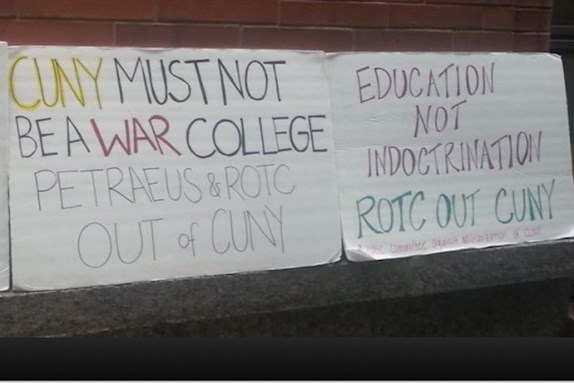 CUNY MUST NOT
BE A WAR COLLEGE
PETRAEUS & ROTC
OUT of CUNY
EDUCATION
NOT
INDOCTRINATION
ROTC OUT CUNY
Committee Against Militarization of CUNY